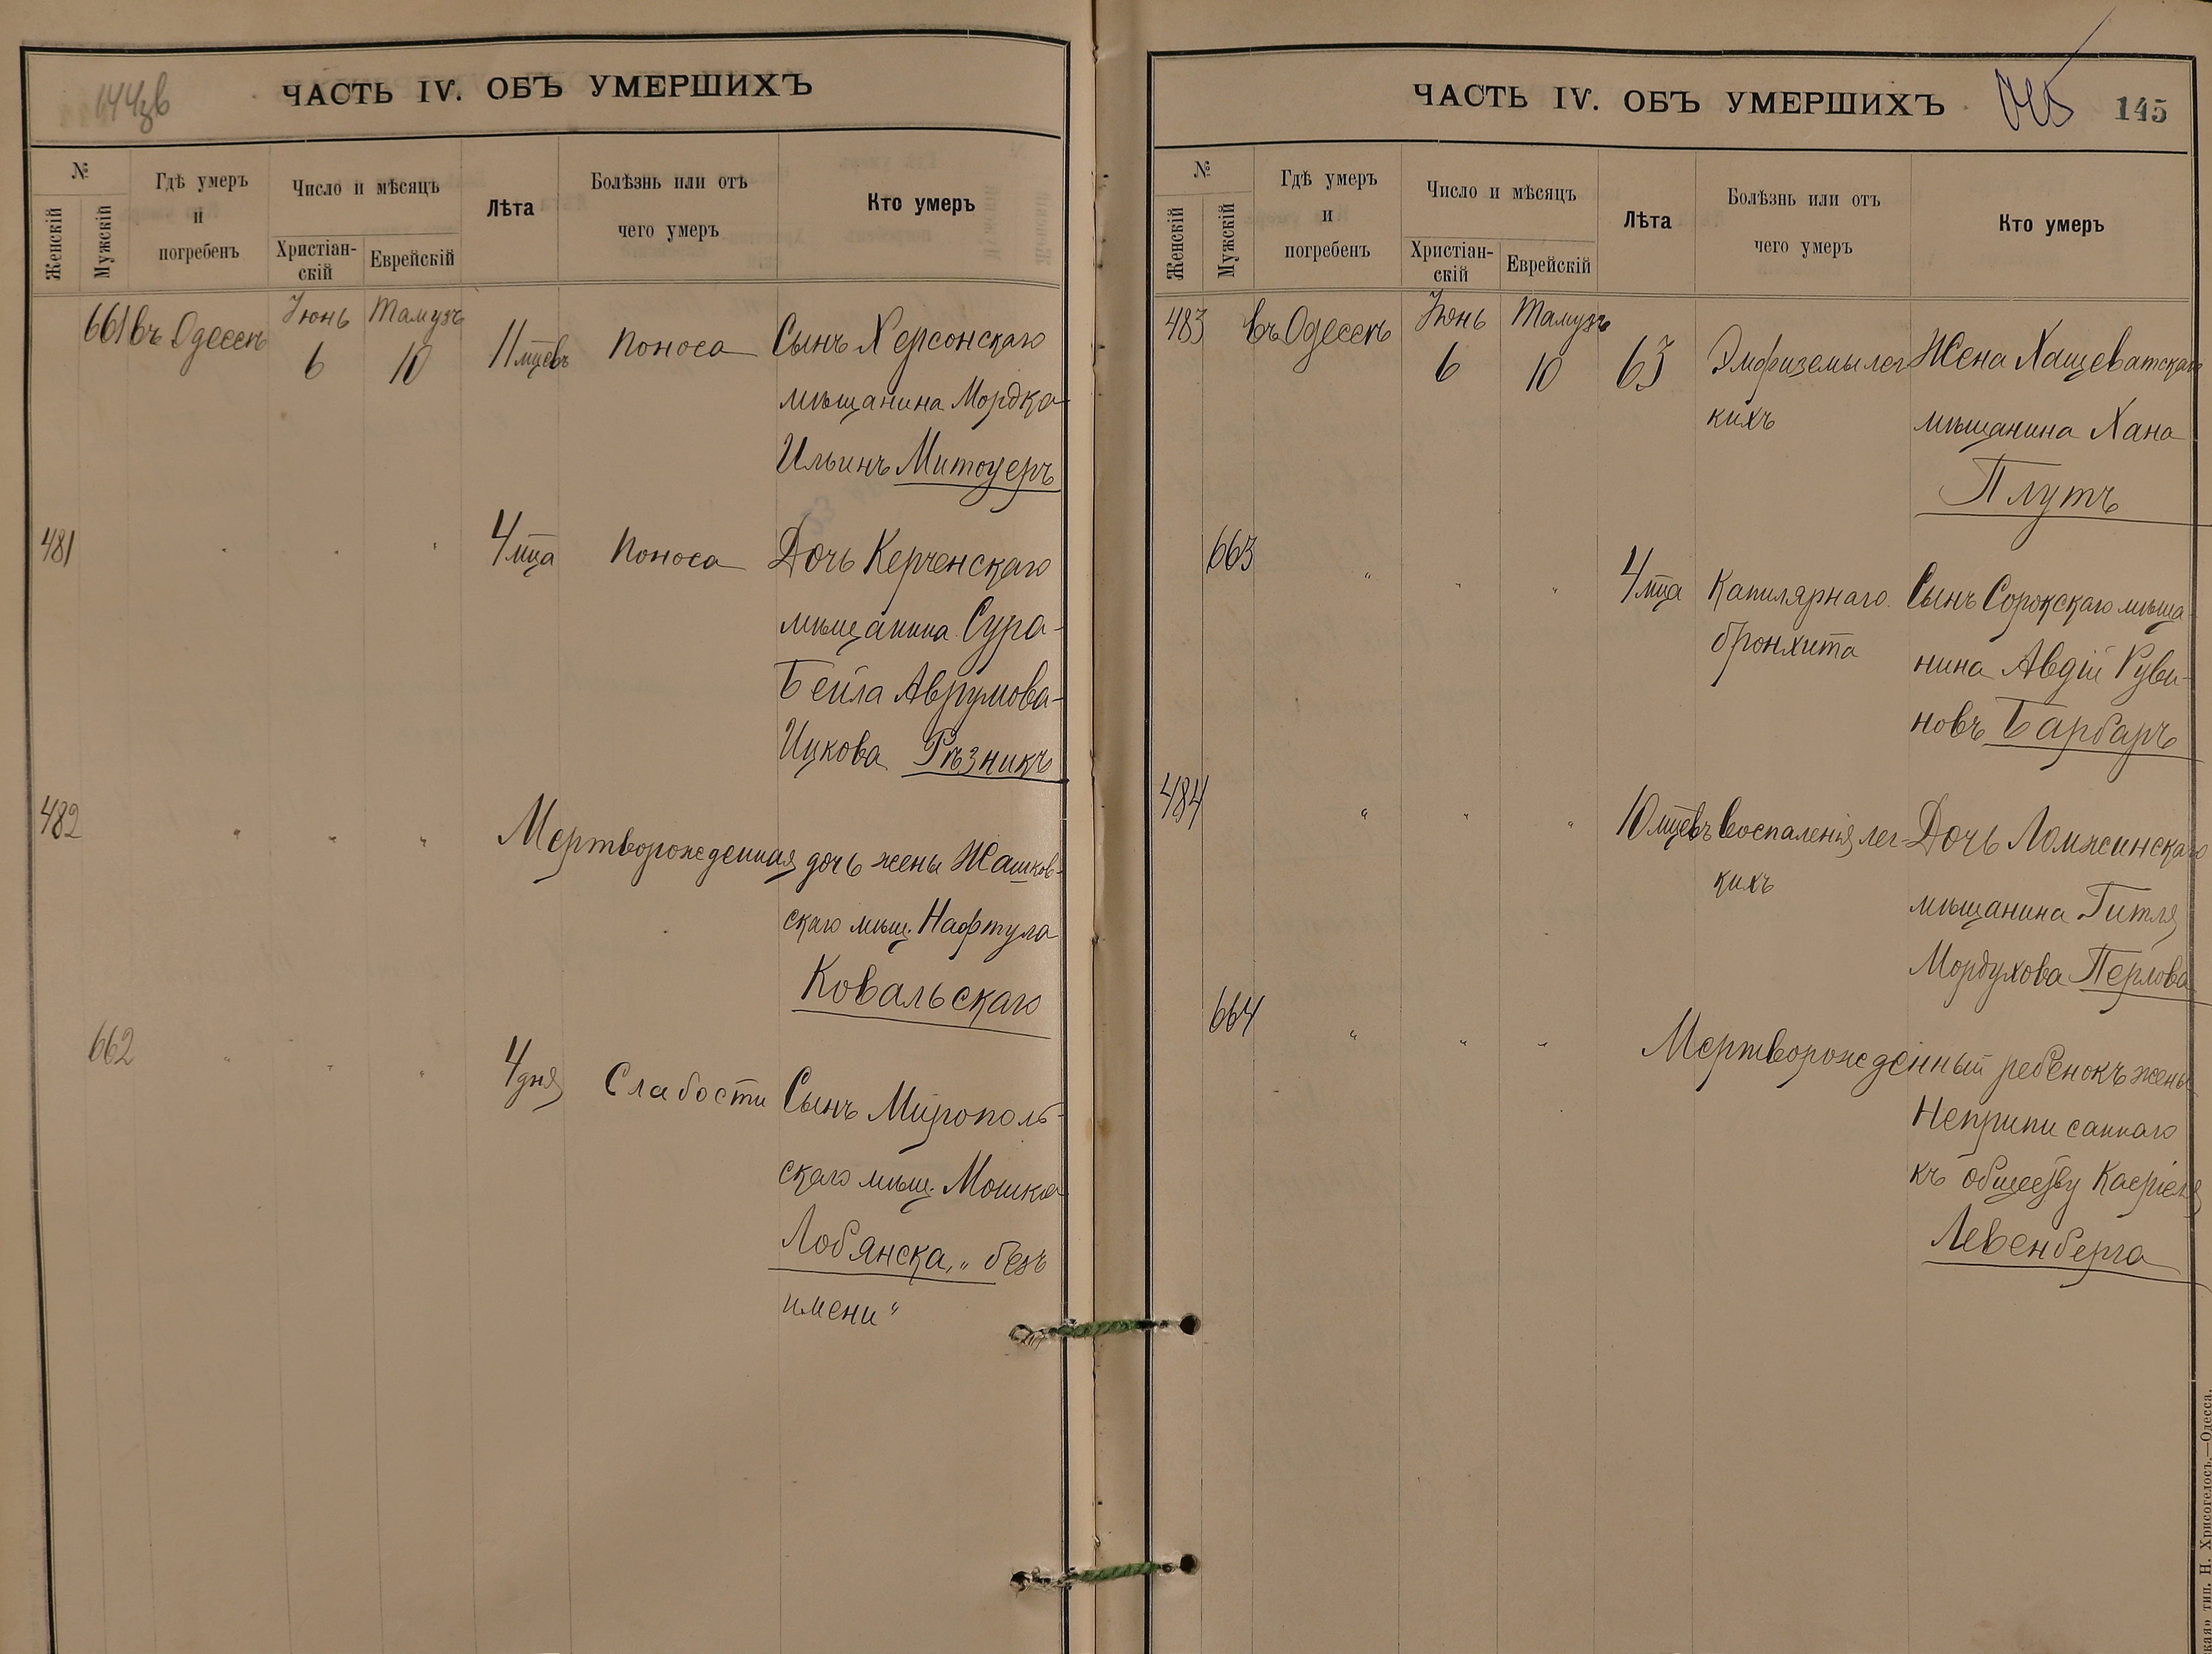 144зв
ЧАСТЬ IV. ОБЪ УМЕРШИХЪ
№
Женскій
Мужскій
Гдѣ умеръ
и
погребенъ
Число и мѣсяцъ
Христіан-
скій
Еврейскій
Лѣта
Болѣзнь или отъ
чего умеръ
Кто умеръ
661 въ Одессѣ Іюнь 6 Тамузъ 10 11 мцевъ Поноса Сынъ Херсонскаго
мѣщанина Мордка
Ильинъ Митоуеръ
481 " " " 4 мца Поноса Дочь Керченскаго
мѣщанина Сура-
Бейла Аврумова-
Ицкова Рѣзникъ
482 " " " Мертворожденная дочь жены Жашков-
скаго мѣщ. Нафтула
Ковальскаго
662 " " " 4 дня Слабости Сынъ Мирополь-
скаго мѣщ. Мошка
Лобянска, „безъ
имени“
ЧАСТЬ IV. ОБЪ УМЕРШИХЪ
145
№
Женскій
Мужскій
Гдѣ умеръ
и
погребенъ
Число и мѣсяцъ
Христіан-
скій
Еврейскій
Лѣта
Болѣзнь или отъ
чего умеръ
Кто умеръ
483 въ Одессѣ Іюнь 6 Тамузъ 10 63 Эмфиземы лег Жена Хащеватскаго
кихъ мѣщанина Хана
Плутъ
663 " " " 4 мца Капилярнаго Сынъ Сорокскаго мѣща-
бронхита нина Авдій Руви-
новъ Барбаръ
484 " " " 10 мцевъ Воспаленія лег- Дочь Ломжинскаго
кихъ мѣщанина Гитля
Мордухова Перлова
664 " " " Мертворожденный ребенокъ жены
Неприписаннаго
къ обществу Касріеля
Левенберга
тип. Н. Хрисогелосъ.—Одесса.